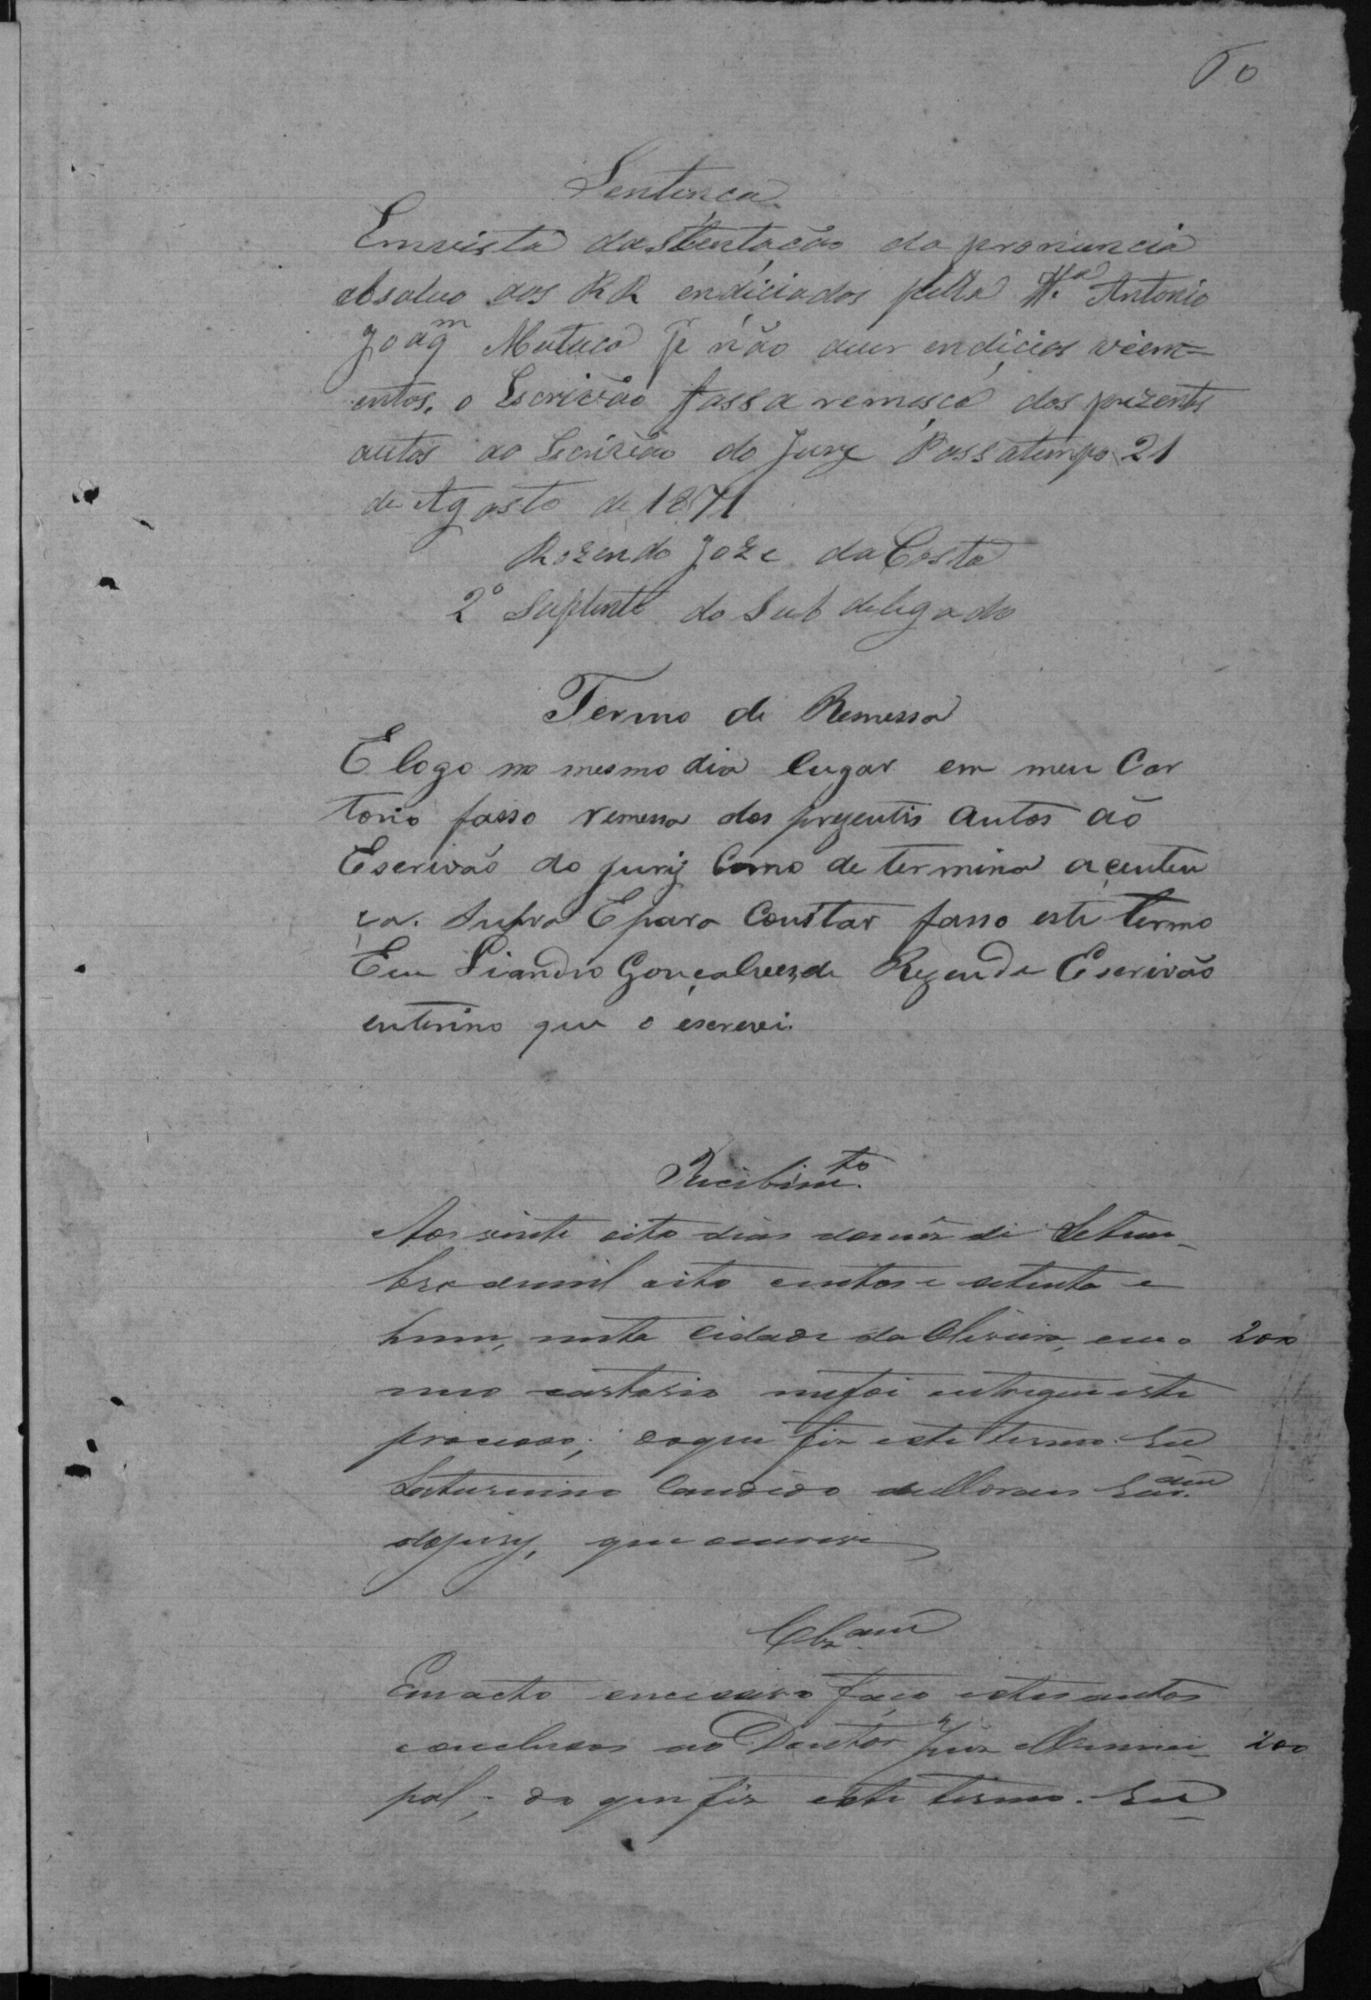 60
Sentença
Emvista da stentação da pronuncia
absolvo aos RR endiciados pella Antonio
Joaqm Mutuca não aver endicios veem=
entos. o Escrivão fassa remeça dos prezents
autos ao Escrivão do Jury Passatempo 21
de Agosto de 1871
Rozendo Joze da Costa
2º Suplente do Sub delegado
Termo de Remessa
E logo no mesmo dia lugar em meu Car
torio fasso remessa dos prezentis autos aó
Escrivaõ do jury Como determina acenten
ça. Supra E para Constar fasso este termo
Eu Liandro Gonçalves de Rezende Escrivão
enterino que o escrevi.
Recebimto
Aos vinte oito dias domês de Setem-
bro demil oito centos e setenta e
hum, nesta Cidade da Oliveira, em o 200
meo cartorio mefoi entregue este
processo; doque fiz este termo. Eu
Saturnino Candido deMoraes Escam
dojury, que escrevi
Clzam
Em acto succecivo faço estes autos
conclusos ao Doutor Juiz Munici- 200
pal; do que fiz este termo. Eu